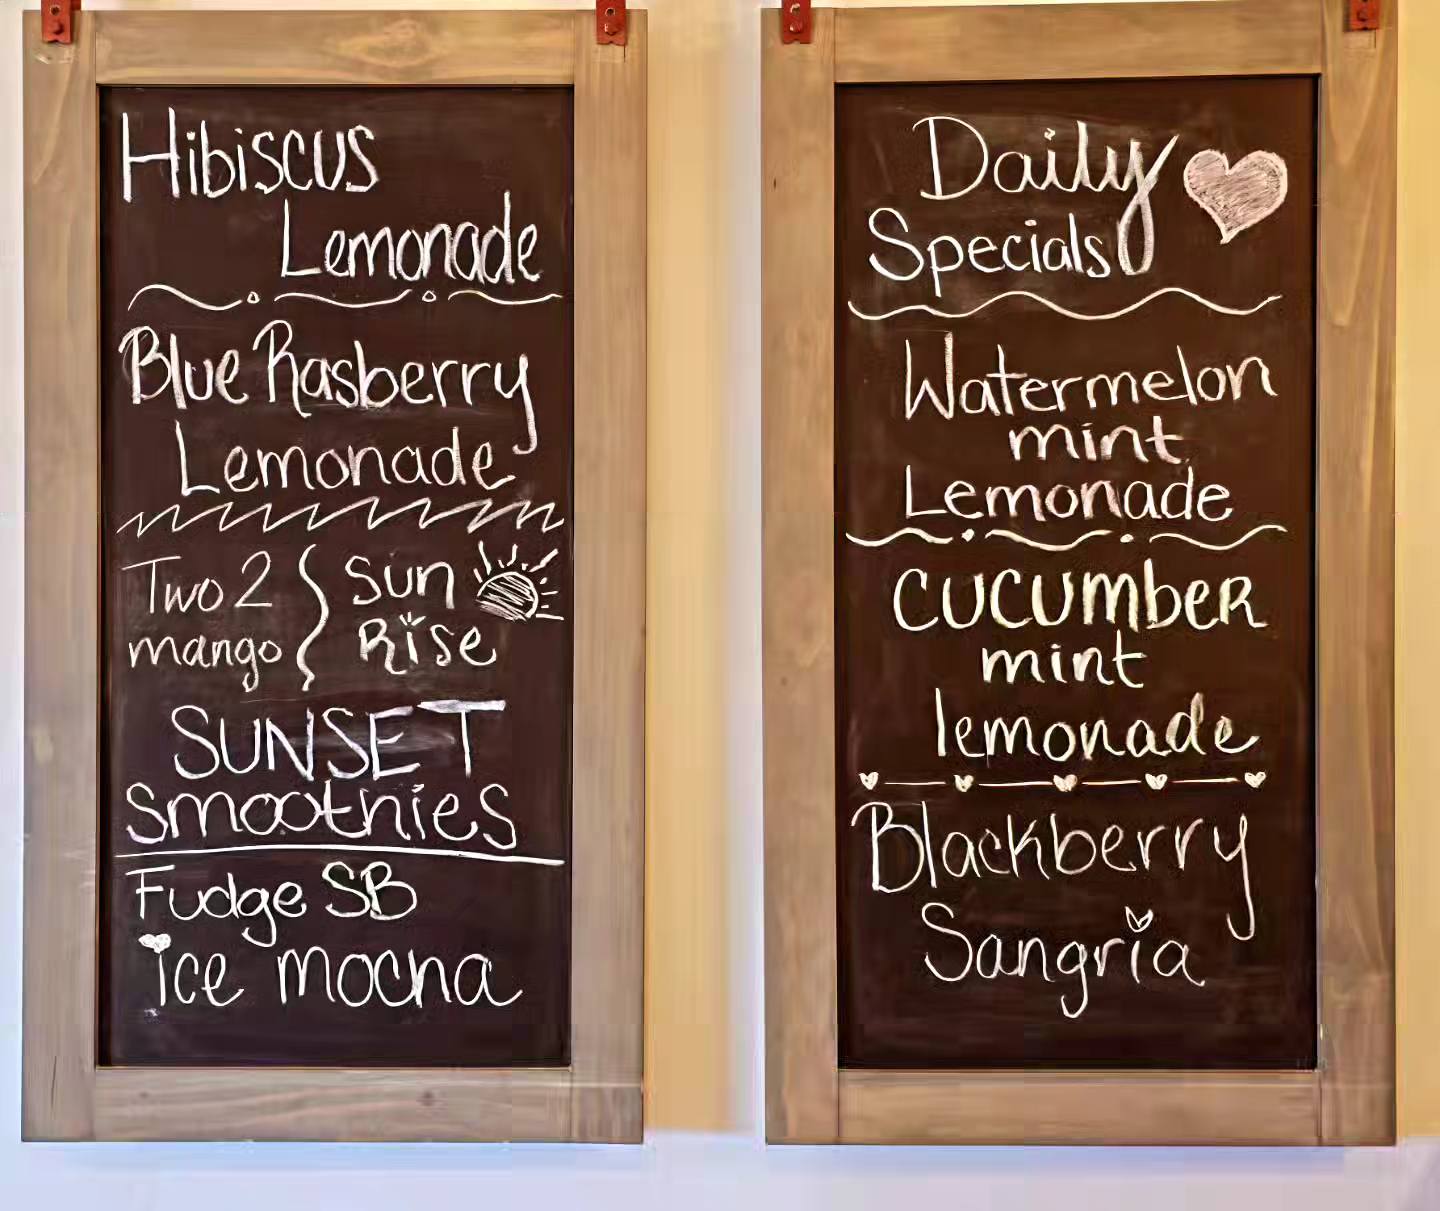 Hibiscus
Lemonade
Blue Rasberry
Lemonade
Two 2
mango
Sun
Rise
SUNSET
smoothies
Fudge SB
ice mocha
Daily
Specials
Watermelon
mint
Lemonade
CUCUmbeR
mint
lemonade
Blackberry
Sangria